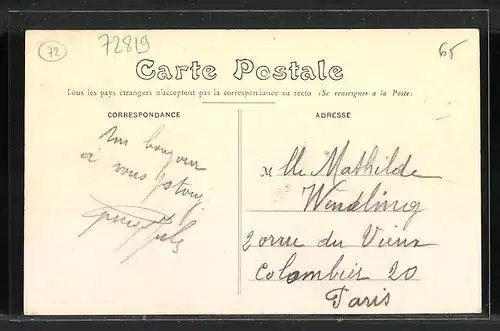 72
72819
65
Carte Postale
Tous les pays étrangers n'acceptent pas la correspondance au recto (Se renseigner à la Poste)
CORRESPONDANCE
ADRESSE
Un bonjour
à vous
Mlle Mathilde
Wendling
rue du Vieux
Colombier 20
Paris